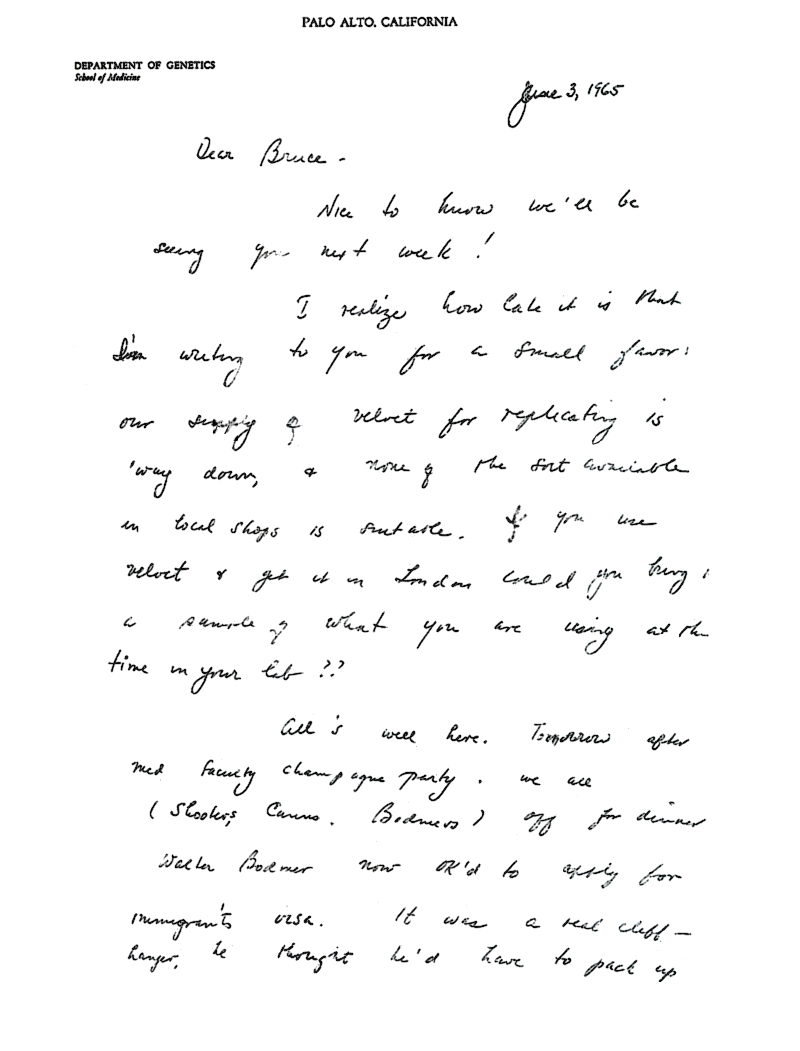 PALO ALTO, CALIFORNIA
DEPARTMENT OF GENETICS
School of Medicine
June 3, 1965
Dear Bruce -
Nice to know we'll be
seeing you next week!
I realize how late it is that
I'm writing to you for a small favor:
our supply of velvet for replicating is
'way down, & none of the sort available
in local shops is suitable. If you use
velvet & get it in London could you bring
a sample of what you are using at the
time in your lab ??
All's well here. Tomorrow after
med faculty champagne party, we all
(Shooters, Canns, Bodmers) off for dinner
Walter Bodmer now OK'd to apply for
immigrant's visa. It was a real cliff-
hanger, he thought he'd have to pack up